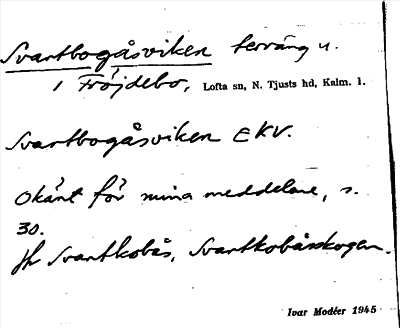 Svartbogåsviken terräng u.
i Fröjdebo, Lofta sn, N. Tjusts hd, Kalm. l.
Svartbogåsviken EKV.
Okänt för mina meddelare, s.
30.
Jfr Svartkobås, Svartkobåsskogen.
Ivar Modéer 1945